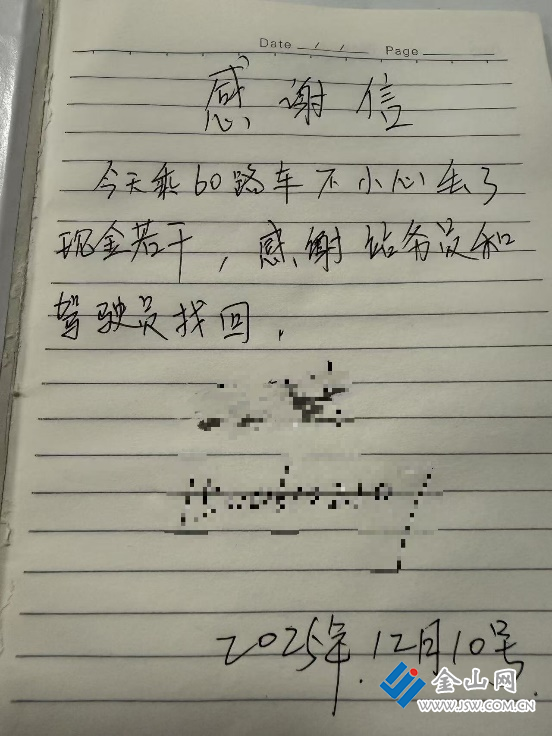 Date / / Page
感谢信
今天乘60路车不小心丢了
现金若干，感谢站务员和
驾驶员找回.
2025年.12月10号.
金山网
WWW.JSW.COM.CN